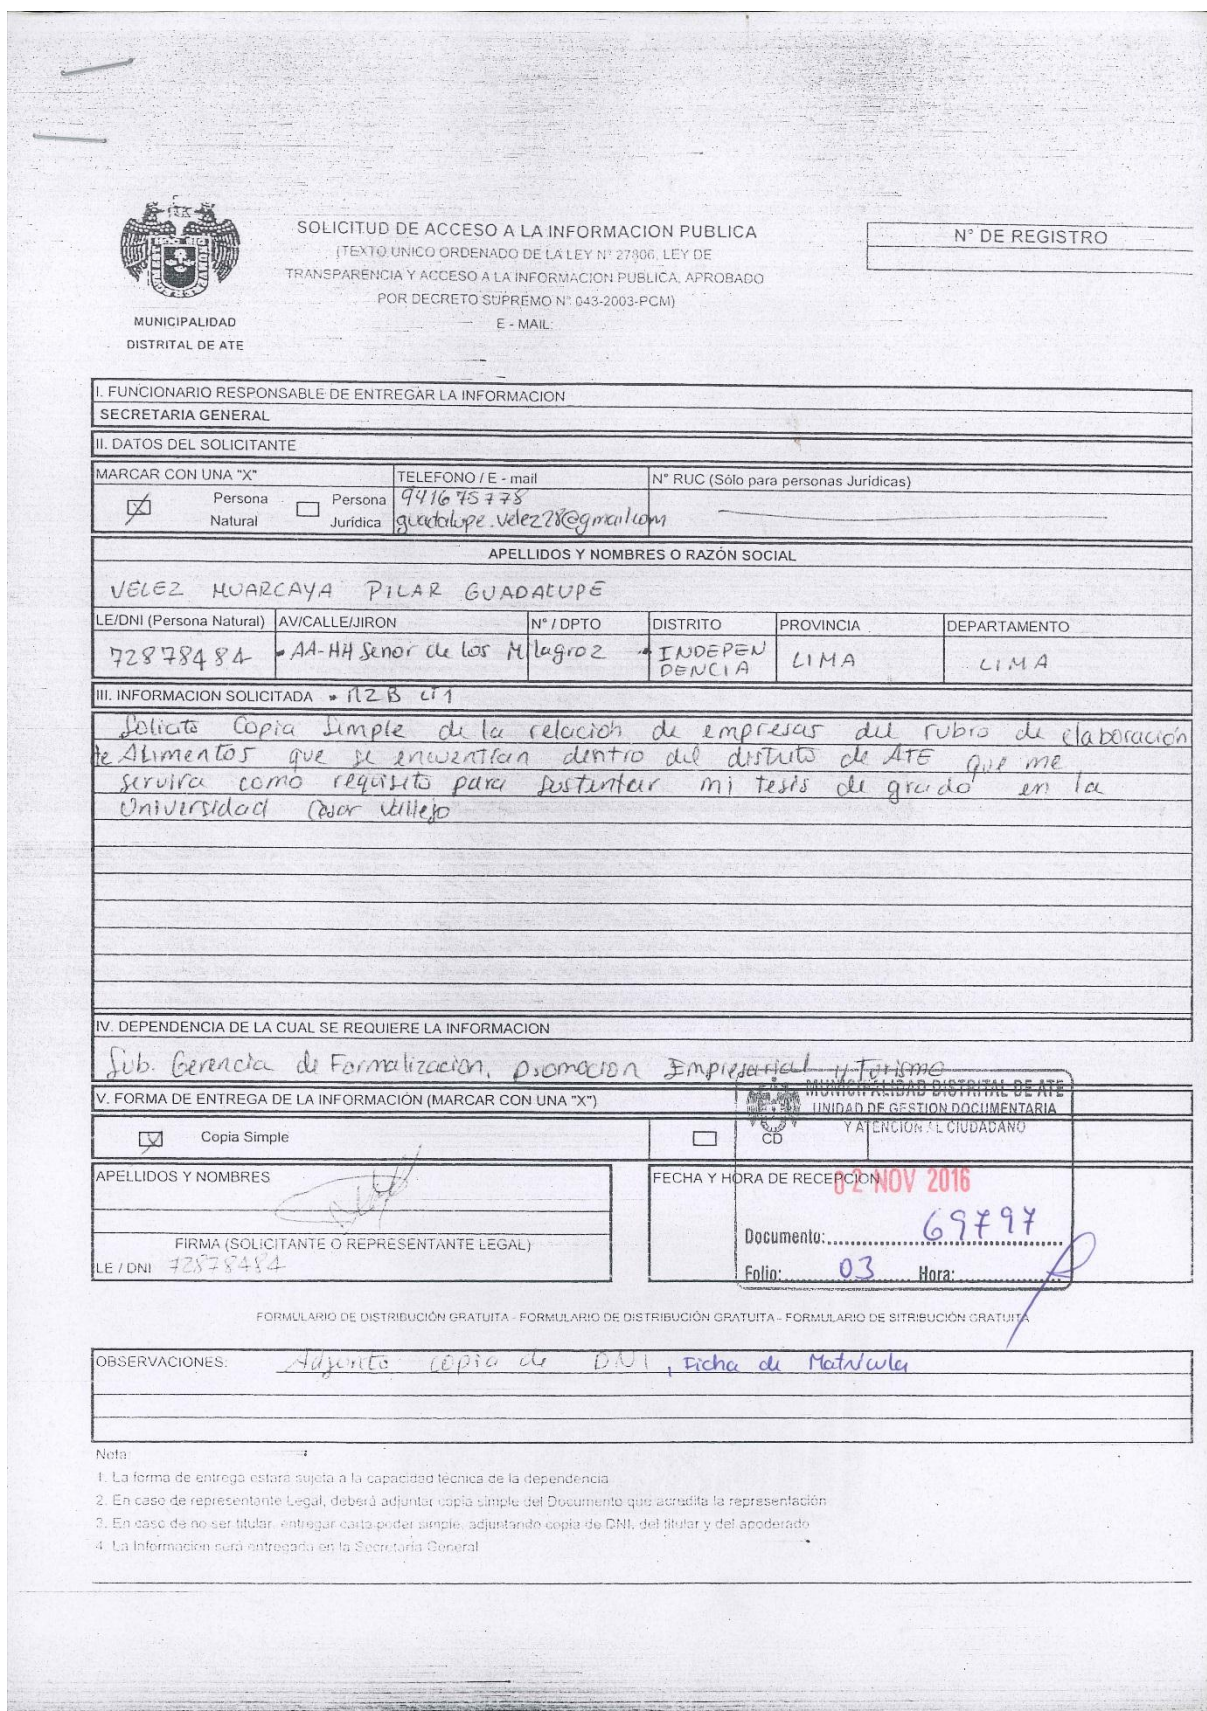 SOLICITUD DE ACCESO A LA INFORMACION PUBLICA
(TEXTO UNICO ORDENADO DE LA LEY N° 27806, LEY DE
TRANSPARENCIA Y ACCESO A LA INFORMACION PUBLICA, APROBADO
POR DECRETO SUPREMO N° 043-2003-PCM)
E - MAIL:
N° DE REGISTRO
MUNICIPALIDAD
DISTRITAL DE ATE
I. FUNCIONARIO RESPONSABLE DE ENTREGAR LA INFORMACION
SECRETARIA GENERAL
II. DATOS DEL SOLICITANTE
MARCAR CON UNA "X" TELEFONO / E - mail N° RUC (Sólo para personas Jurídicas)
X Persona Natural Persona Jurídica
941675778
guadalupe.velez28@gmail.com
APELLIDOS Y NOMBRES O RAZÓN SOCIAL
VELEZ HUARCAYA PILAR GUADALUPE
LE/DNI (Persona Natural) AV/CALLE/JIRON N° / DPTO DISTRITO PROVINCIA DEPARTAMENTO
72878484 AA-HH Senor de los Milagroz INDEPENDENCIA LIMA LIMA
III. INFORMACION SOLICITADA MZ B LT 1
Solicito Copia Simple de la relación de empresas del rubro de elaboración
de Alimentos que se encuentran dentro del distrito de ATE que me
servira como requisito para sustentar mi tesis de grado en la
Universidad Cesar Vallejo
IV. DEPENDENCIA DE LA CUAL SE REQUIERE LA INFORMACION
Sub. Gerencia de Formalización, promocion Empresarial y Turismo
V. FORMA DE ENTREGA DE LA INFORMACIÓN (MARCAR CON UNA "X")
MUNICIPALIDAD DISTRITAL DE ATE
UNIDAD DE GESTION DOCUMENTARIA
Y ATENCION AL CIUDADANO
X Copia Simple CD
APELLIDOS Y NOMBRES FECHA Y HORA DE RECEPCIÓN
02 NOV 2016
Documento: 69797
FIRMA (SOLICITANTE O REPRESENTANTE LEGAL)
LE / DNI 72878484
Folio: 03 Hora:
FORMULARIO DE DISTRIBUCIÓN GRATUITA - FORMULARIO DE DISTRIBUCIÓN GRATUITA - FORMULARIO DE SITRIBUCIÓN GRATUITA
OBSERVACIONES: Adjunto copia de DNI, Ficha de Matrícula
Nota:
1. La forma de entrega estara sujeta a la capacidad tecnica de la dependencia
2. En caso de representante Legal, deberá adjuntar copia simple del Documento que acredita la representación
3. En caso de no ser titular, entregar carta poder simple, adjuntando copia de DNI, del titular y del apoderado
4. La Informacion será entregada en la Secretaria General